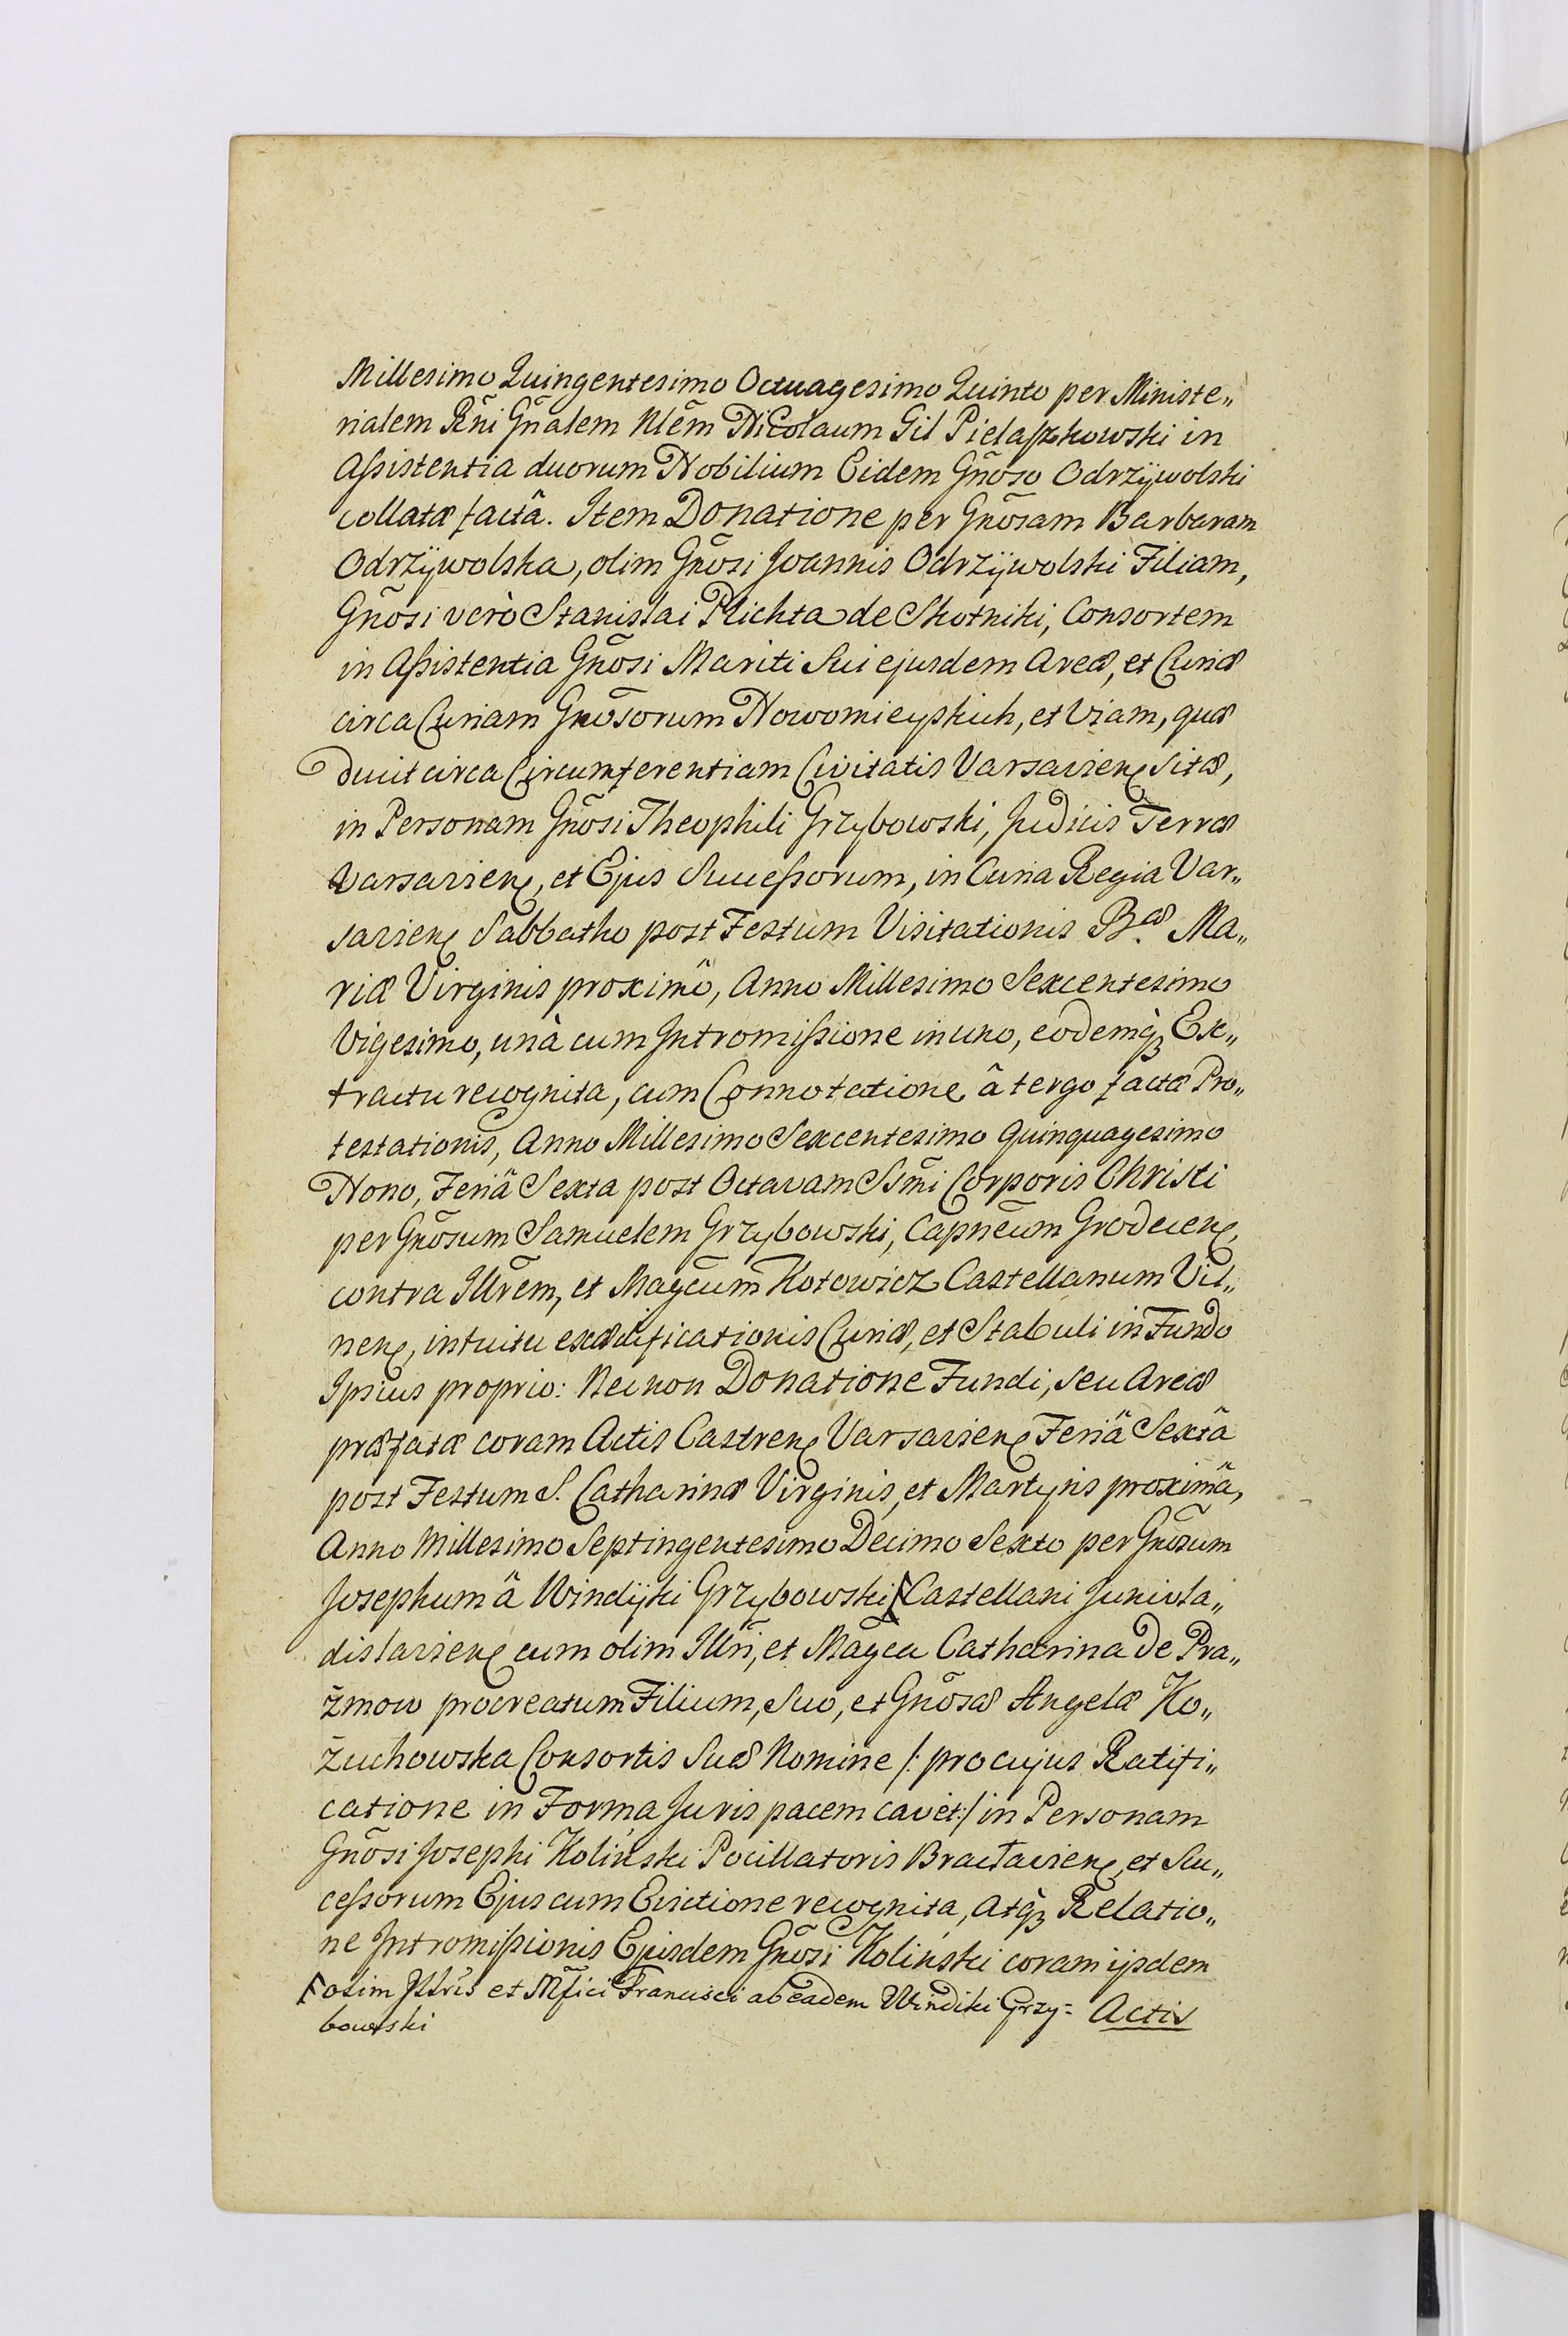 Millesimo Quingentesimo Octuagesimo Quinto per Ministe„
rialem Rñi Gñalem Nlẽm Nicolaum Gil Pielaszkowski in
Assistentia duorum Nobilium Eidem Gñoso Odrzÿwolski
collatæ factâ. Item Donatione per Gñosam Barbaram
Odrzÿwolska, olim Gñosi Joannis Odrzÿwolski Filiam,
Gñosi verò Stanislai Plichta de Skotniki, Consortem
in Assistentia Gñosi Mariti Sui ejusdem Areæ, et Curiæ
circa Curiam Gñosorum Nowomieyskich, et Viam, quæ
ducit circa Circumferentiam Civitatis Varsavien sitæ,
in Personam Gñosi Theophili Grzybowski, Judicis Terræ
Varsavien, et Ejus Successorum, in Curia Regia Var„
savien Sabbatho post Festum Visitationis B.æ Ma„
riæ Virginis proximô, Anno Millesimo Sexcentesimo
Vigesimo, unà cum Intromissione in uno, eodemq̀ꝫ Ex„
tractu recognita, cum Connotatione â tergo factæ Pro„
testationis, Anno Millesimo Sexcentesimo Quinquagesimo
Nono, Feriâ Sexta post Octavam Ssmĩ Corporis Christi
per Gñosum Samuelem Grzybowski, Capnẽum Grodecen,
contra Illrẽm, et Magcum̃ Kotowicz Castellanum Vil„
nen, intuitu exædificationis Curiæ, et Stabuli in Fundo
Ipsius proprio: Necnon Donatione Fundi, seu Areæ
præfatæ coram Actis Castren Varsavien Feriâ Sextâ
post Festum S. Catharinæ Virginis, et Martyris proximâ,
Anno Millesimo Septingentesimo Decimo Sexto per Gñosum
Josephum â Windÿki Grzybowski [Castellani Junivla„
dislavien cum olim Illri, et Magca Catharina de Pra„
żmow procreatum Filium, suo, et Gñosæ Angelæ Ko„
żuchowska Consortis Suæ Nomine /: pro cujus Ratifi„
catione in Forma Juris pacem cavet:/ in Personam
Gñosi Josephi Koliński Pocillatoris Bractavien, et Suc„
cessorum Ejus cum Evictione recognita, atq̀ꝫ Relatio„
ne Intromissionis Ejusdem Gñosi Koliński coram ijsdem
[olim Illris et Mfici Francisci ab eadem Windiki Grzy= Actis
bowski